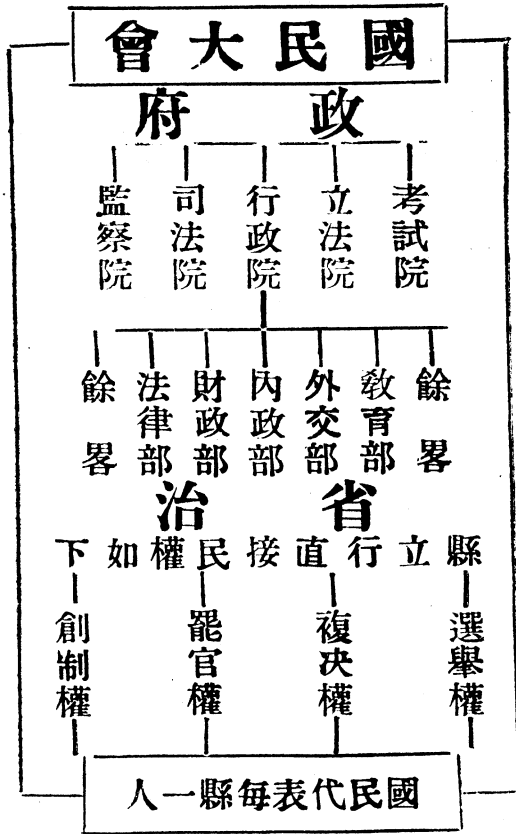 國民大會
政府
考試院
立法院
行政院
司法院
監察院
餘畧
敎育部
外交部
內政部
財政部
法律部
餘畧
省治
縣立行直接民權如下
選舉權
複决權
罷官權
創制權
國民代表每縣一人